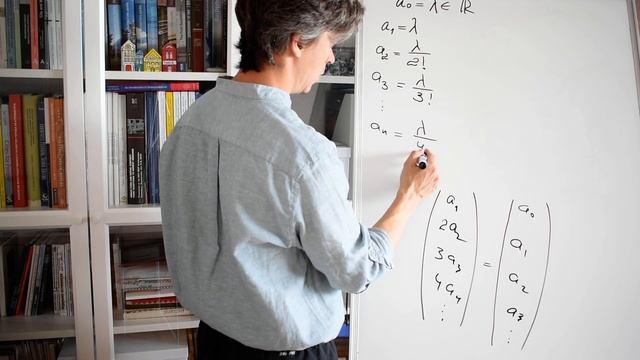 a₀ = λ ∈ ℝ
a₁ = λ
a₂ = λ/2!
a₃ = λ/3!
⋮
aₙ = λ/
(a₁ 2a₂ 3a₃ 4a₄ ⋮) = (a₀ a₁ a₂ a₃ ⋮)